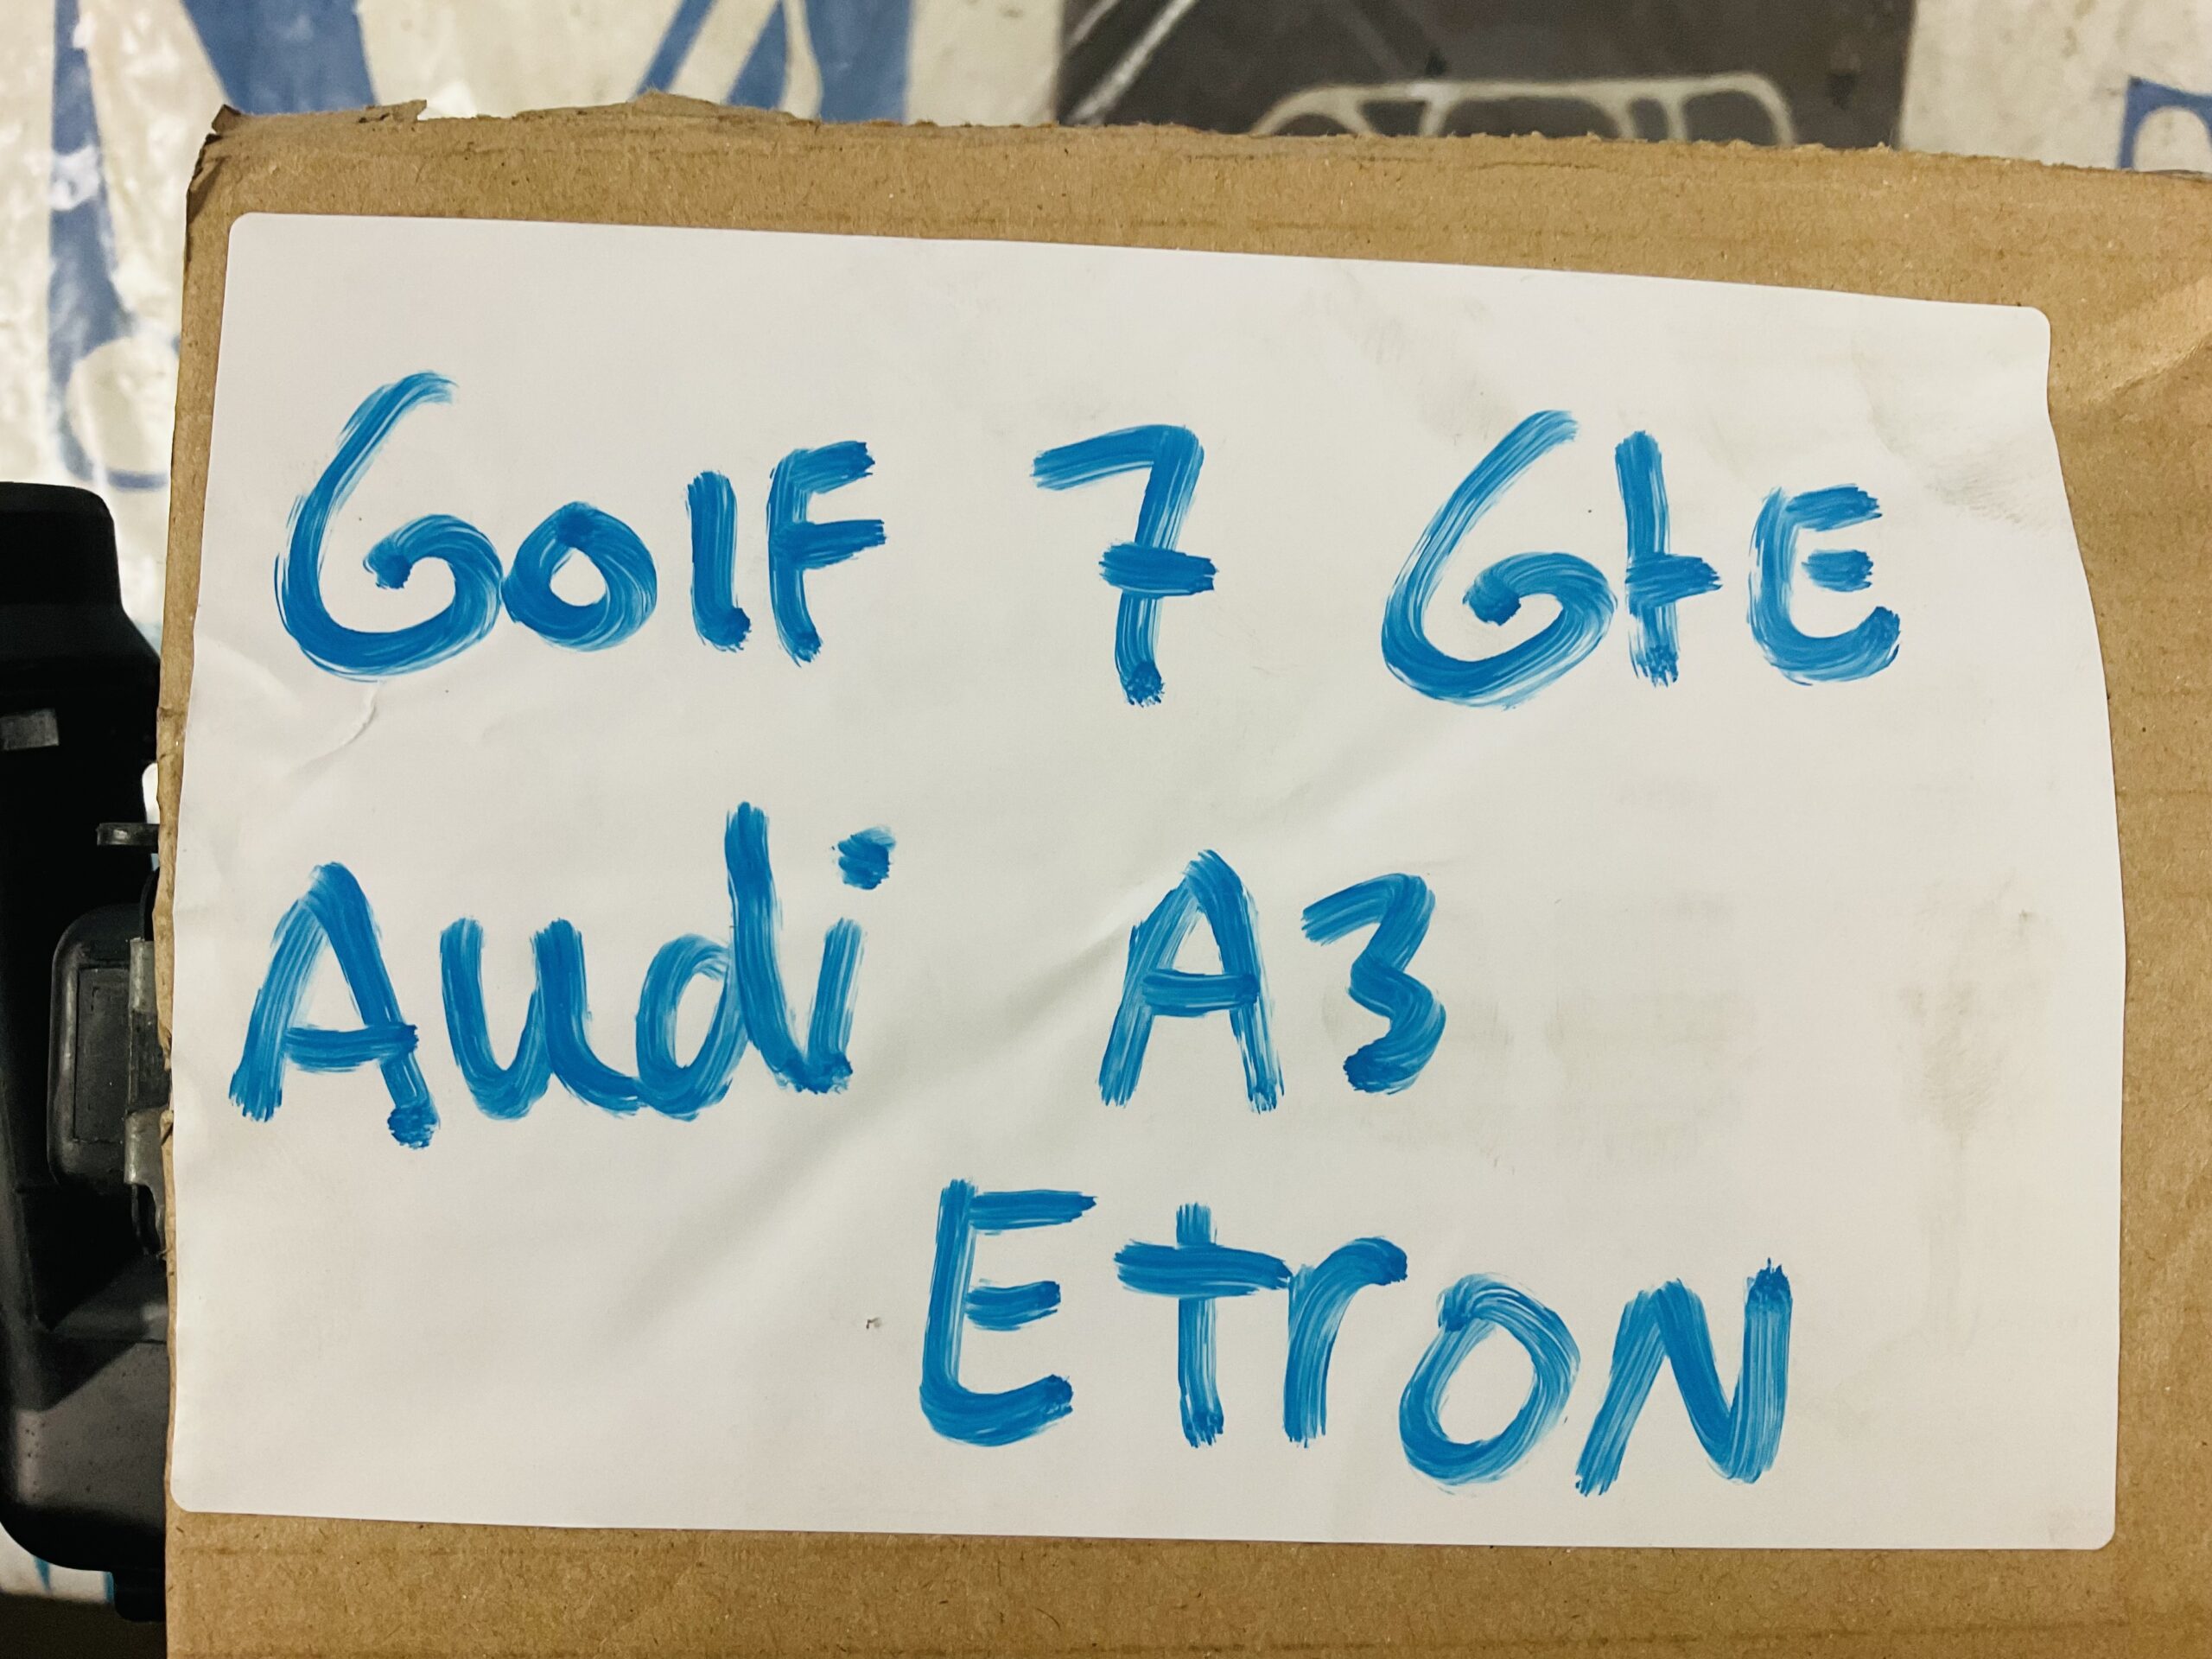 GolF 7 GtE
Audi A3
EtroN